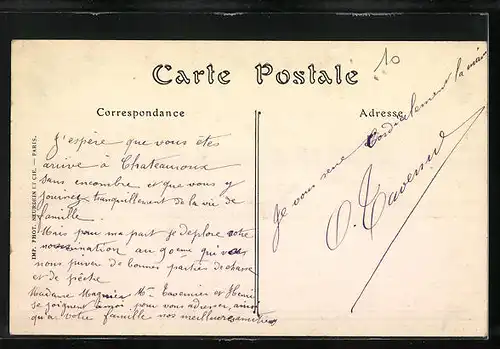 10
Carte Postale
Correspondance
Adresse
J'espère que vous êtes
arrivé à Chateauroux
sans encombre et que vous y
jouirez tranquillement de la vie de
famille.
Mais pour ma part je déplore votre
nomination au 90ème qui va
nous priver de bonnes parties de chasse
et de pêche
Madame Magnier Mme Tavernier et Henri
se joignent à moi pour vous adresser, ainsi
qu'à votre famille nos meilleures amitiés
Je vous serre cordialement la main
O. Tavernier
IMP. PHOT. NEURDEIN ET CIE. — PARIS.